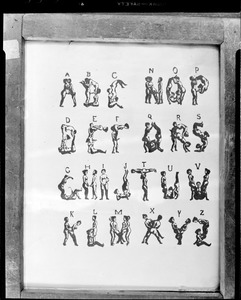 A B C N O P
D E F Q R S
G H I J T U V
K L M X Y Z